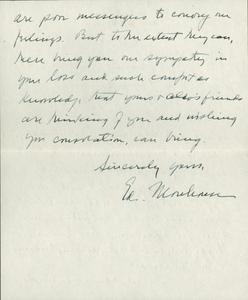 are poor messengers to convey our
feelings. But to the extent they can,
these bring you our sympathy in
your loss and such comfort as
knowledge that yours & friends
are thinking of you and wishing
you consolation, can bring.
Sincerely yours,
Ed.